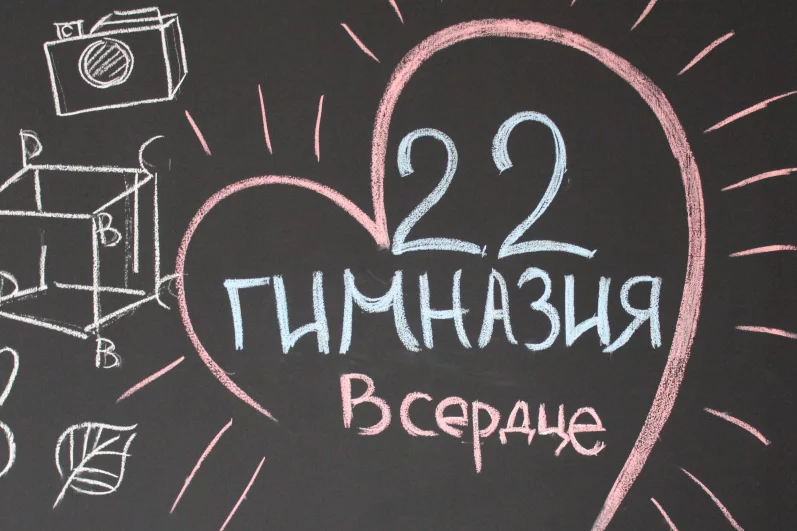 22
ГИМНАЗИЯ
В сердце
D
C
B
B